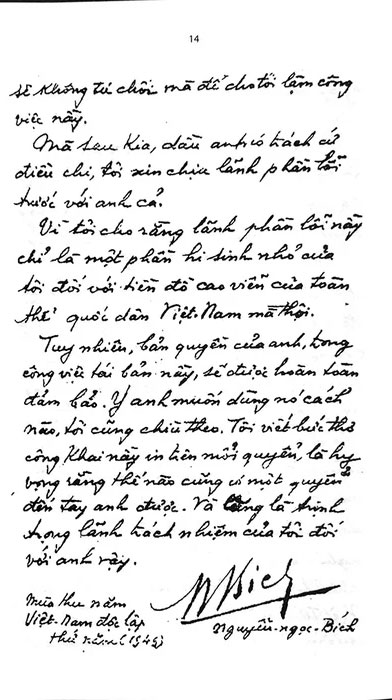 14
sẽ không từ chối mà để cho tôi làm công
việc này.
Mà sau kia, dầu anh có trách cứ
điều chi, tôi xin chịu lãnh phần lỗi
trước với anh cả.
Vì tôi cho rằng lãnh phần lỗi này
chỉ là một phần hi sinh nhỏ của
tôi đối với tiền đồ cao viễn của toàn
thể quốc dân Việt-Nam mà thôi.
Tuy nhiên, bản quyền của anh, trong
công việc tái bản này, sẽ được hoàn toàn
đảm bảo. Ý anh muốn dùng nó cách
nào, tôi cũng chiều theo. Tôi viết bức thư
công khai này in trên mỗi quyển, là hy
vọng rằng thế nào cũng có một quyển
đến tay anh được. Và cũng là trịnh
trọng lãnh trách nhiệm của tôi đối
với anh vậy.
Mùa thu năm
Việt-Nam độc lập
thứ năm (1949)
NBích
Nguyễn-ngọc-Bích